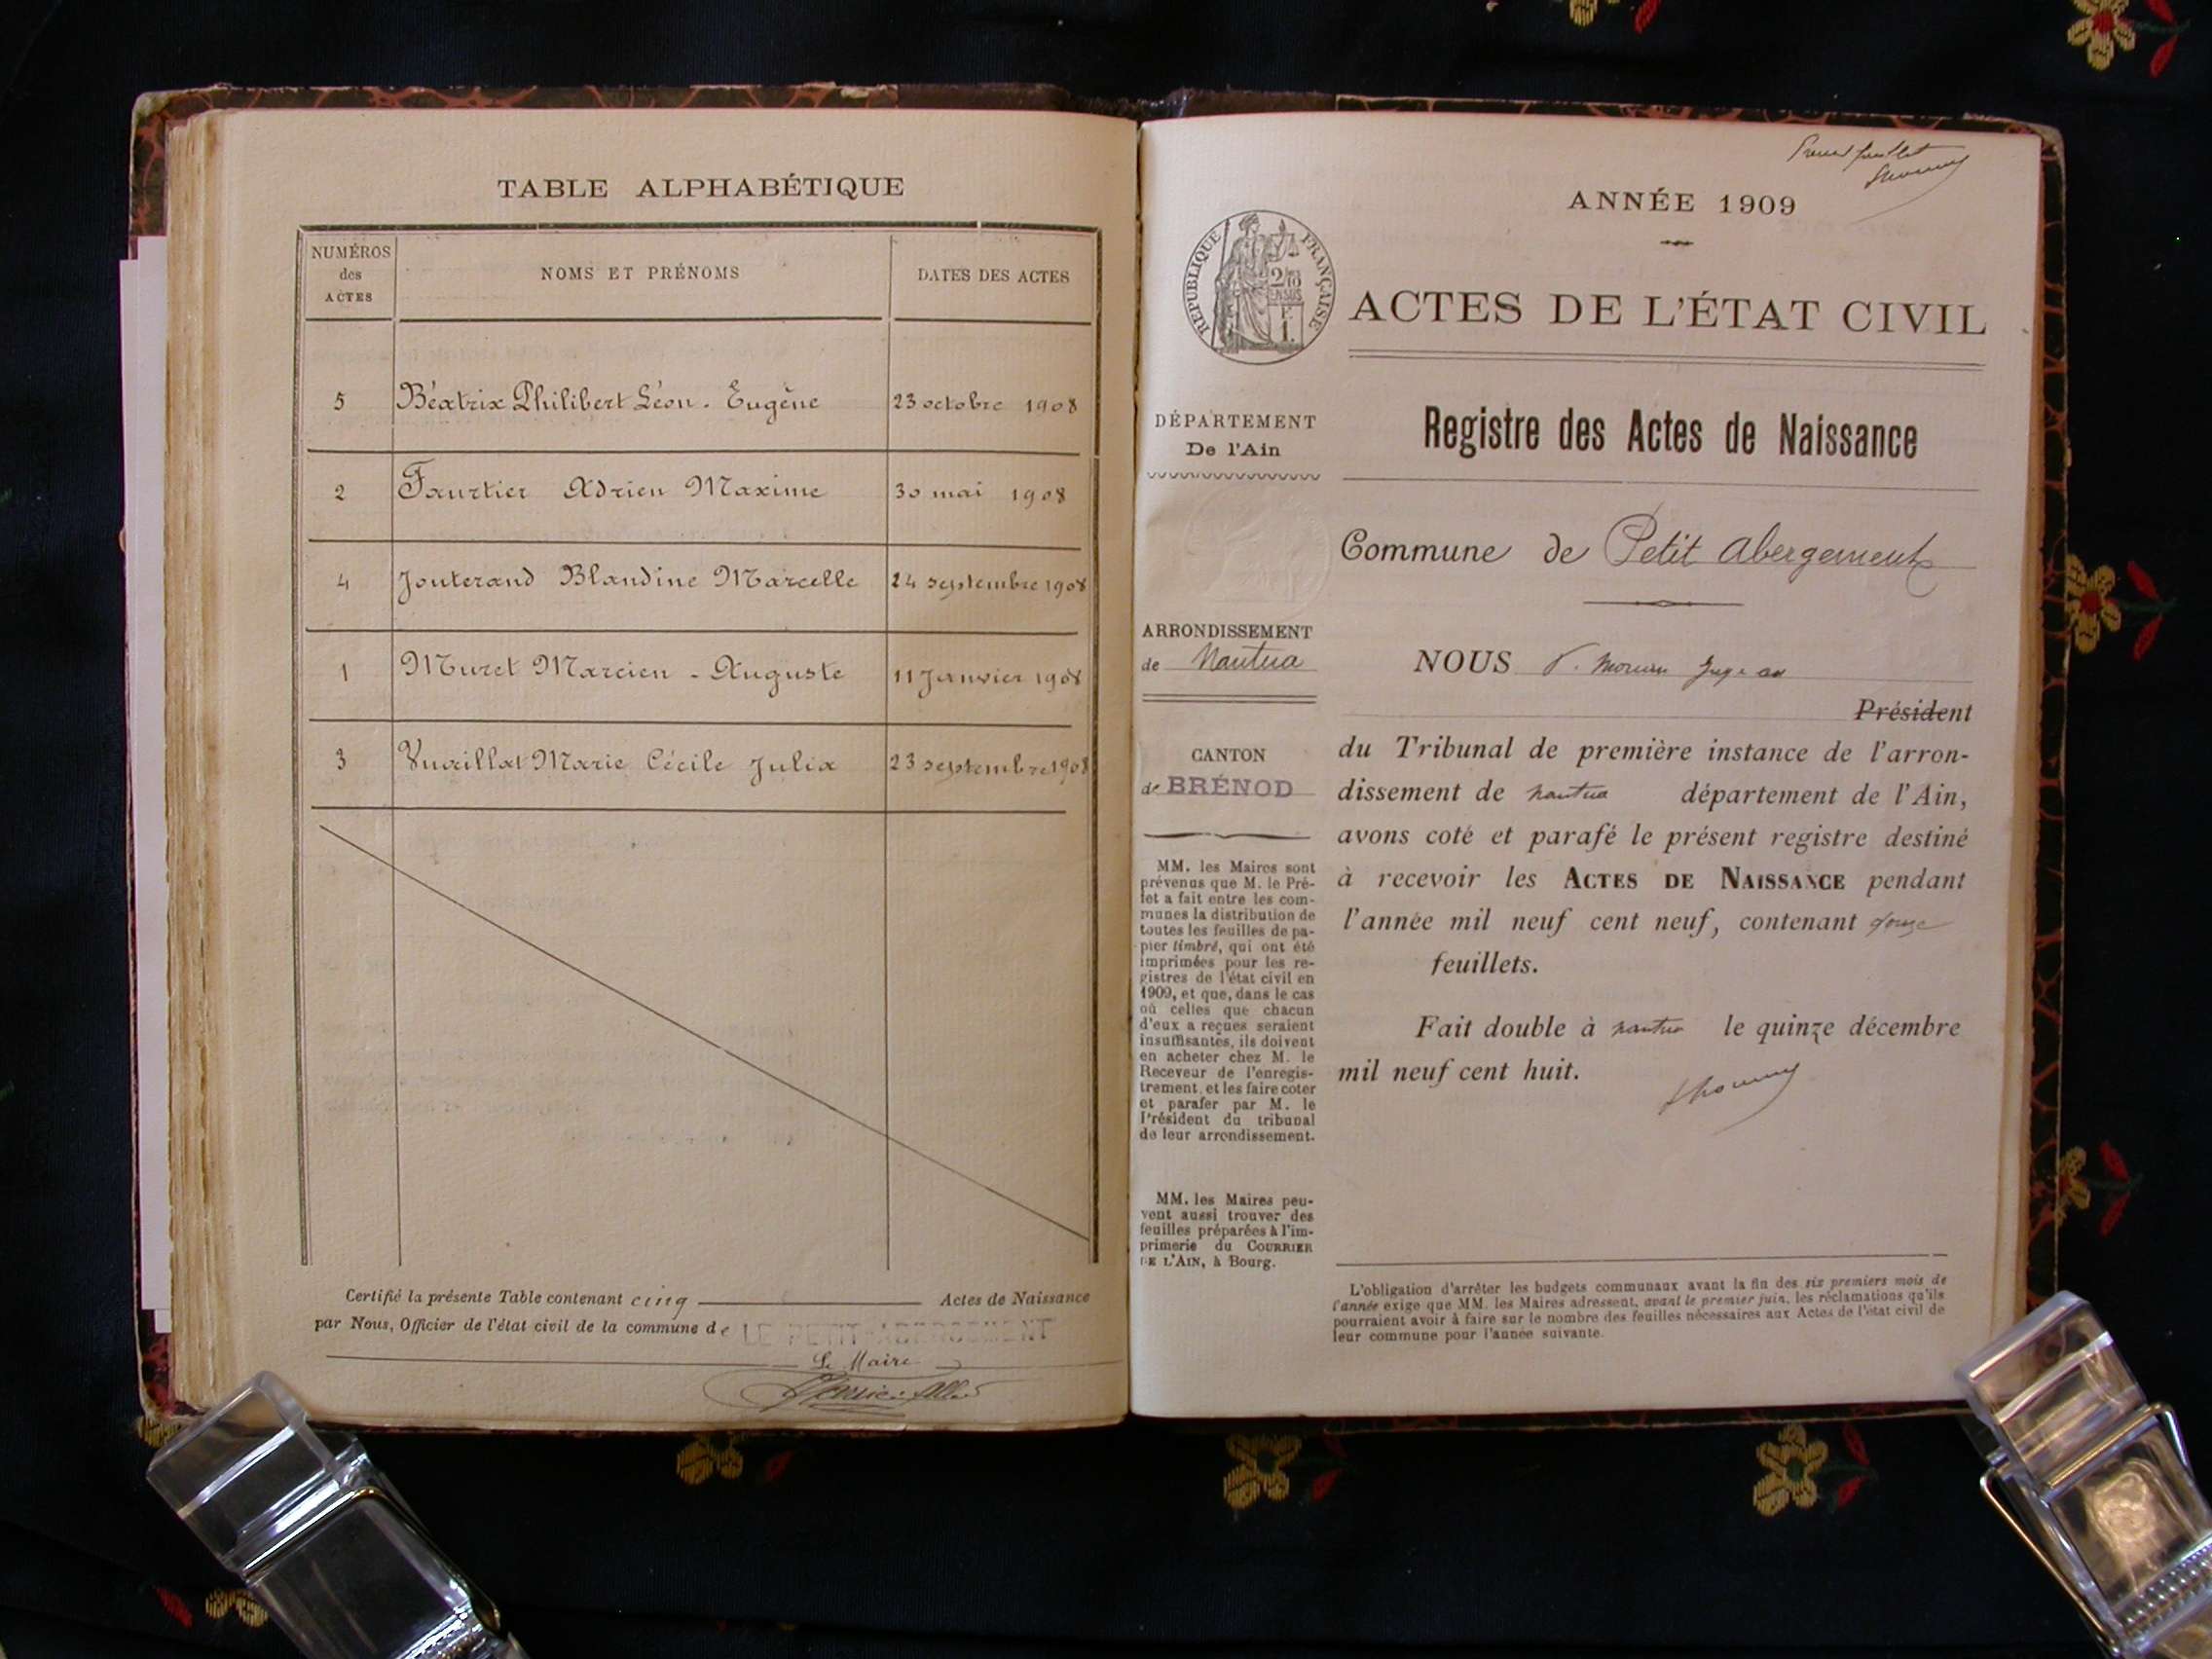 TABLE ALPHABÉTIQUE
NUMÉROS
des
ACTES
NOMS ET PRÉNOMS
DATES DES ACTES
5 Béatrix Philibert Léon - Eugène 23 octobre 1908
2 Fourtier Adrien Maxime 30 mai 1908
4 Jouterand Blandine Marcelle 24 septembre 1908
1 Muret Marcien - Auguste 11 Janvier 1908
3 Vuaillat Marie Cécile Julia 23 septembre 1908
Certifié la présente Table contenant cinq Actes de Naissance
par Nous, Officier de l'état civil de la commune de LE PETIT-ABERGEMENT
Le Maire
ANNÉE 1909
RÉPUBLIQUE FRANÇAISE
2/10
EN SUS
ACTES DE L'ÉTAT CIVIL
DÉPARTEMENT
De l'Ain
ARRONDISSEMENT
de Nantua
CANTON
de BRÉNOD
MM. les Maires sont
prévenus que M. le Pré-
fet a fait entre les com-
munes la distribution de
toutes les feuilles de pa-
pier timbré, qui ont été
imprimées pour les re-
gistres de l'état civil en
1909, et que, dans le cas
où celles que chacun
d'eux a reçues seraient
insuffisantes, ils doivent
en acheter chez M. le
Receveur de l'enregis-
trement, et les faire coter
et parafer par M. le
Président du tribunal
de leur arrondissement.
MM. les Maires peu-
vent aussi trouver des
feuilles préparées à l'im-
primerie du COURRIER
DE L'AIN, à Bourg.
Registre des Actes de Naissance
Commune de Petit Abergement
NOUS
Président
du Tribunal de première instance de l'arron-
dissement de nantua département de l'Ain,
avons coté et parafé le présent registre destiné
à recevoir les ACTES DE NAISSANCE pendant
l'année mil neuf cent neuf, contenant douze
feuillets.
Fait double à nantua le quinze décembre
mil neuf cent huit.
L'obligation d'arrêter les budgets communaux avant la fin des six premiers mois de
l'année exige que MM. les Maires adressent, avant le premier juin, les réclamations qu'ils
pourraient avoir à faire sur le nombre des feuilles nécessaires aux Actes de l'état civil de
leur commune pour l'année suivante.